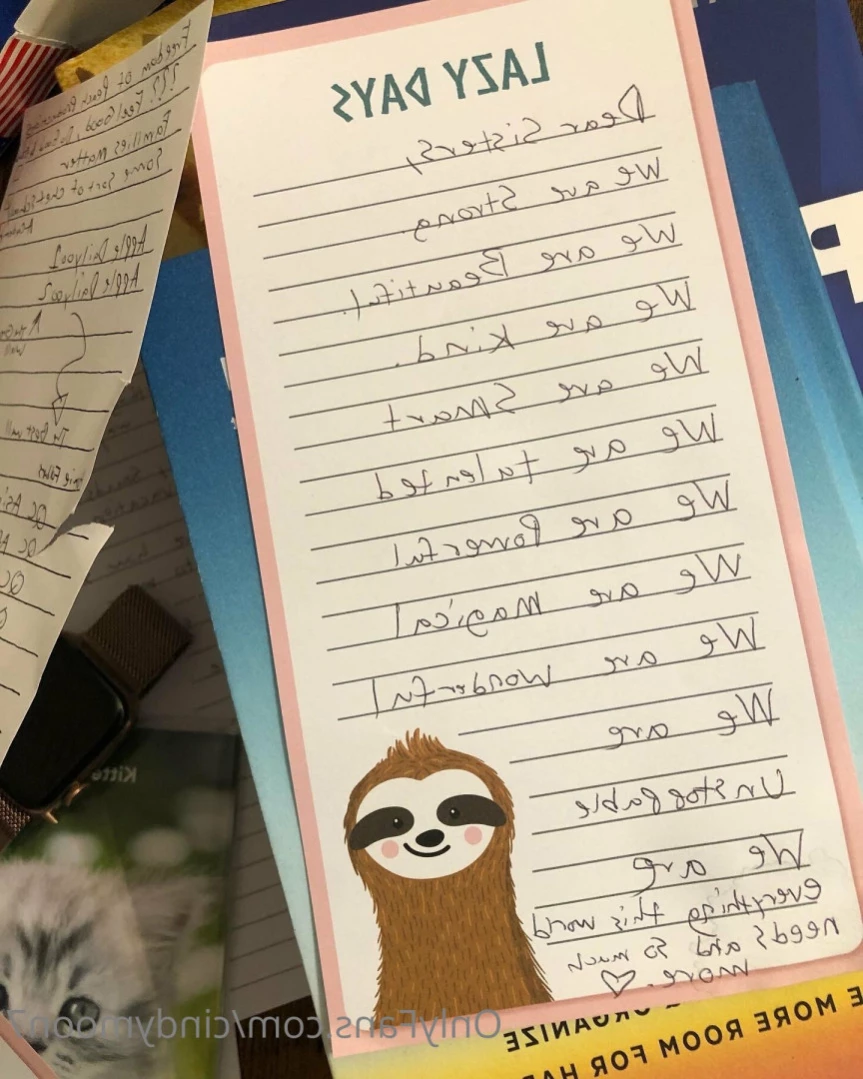 LAZY DAYS
Dear Sisters,
We are Strong
We are Beautiful.
We are kind.
We are Smart
We are talented
We are Powerful
We are Magical
We are Wonderful
We are
Unstoppable
We are
everything this world
needs and so much
more. ♡
Freedom of
???. Feel Good,
Families Matter
Some Sort of
Apple Daily001
Apple Daily002
The Best
QC
QC
QC
Kitte
OnlyFans.com/cindymoon7
ORGANIZE
E MORE ROOM FOR HA
P